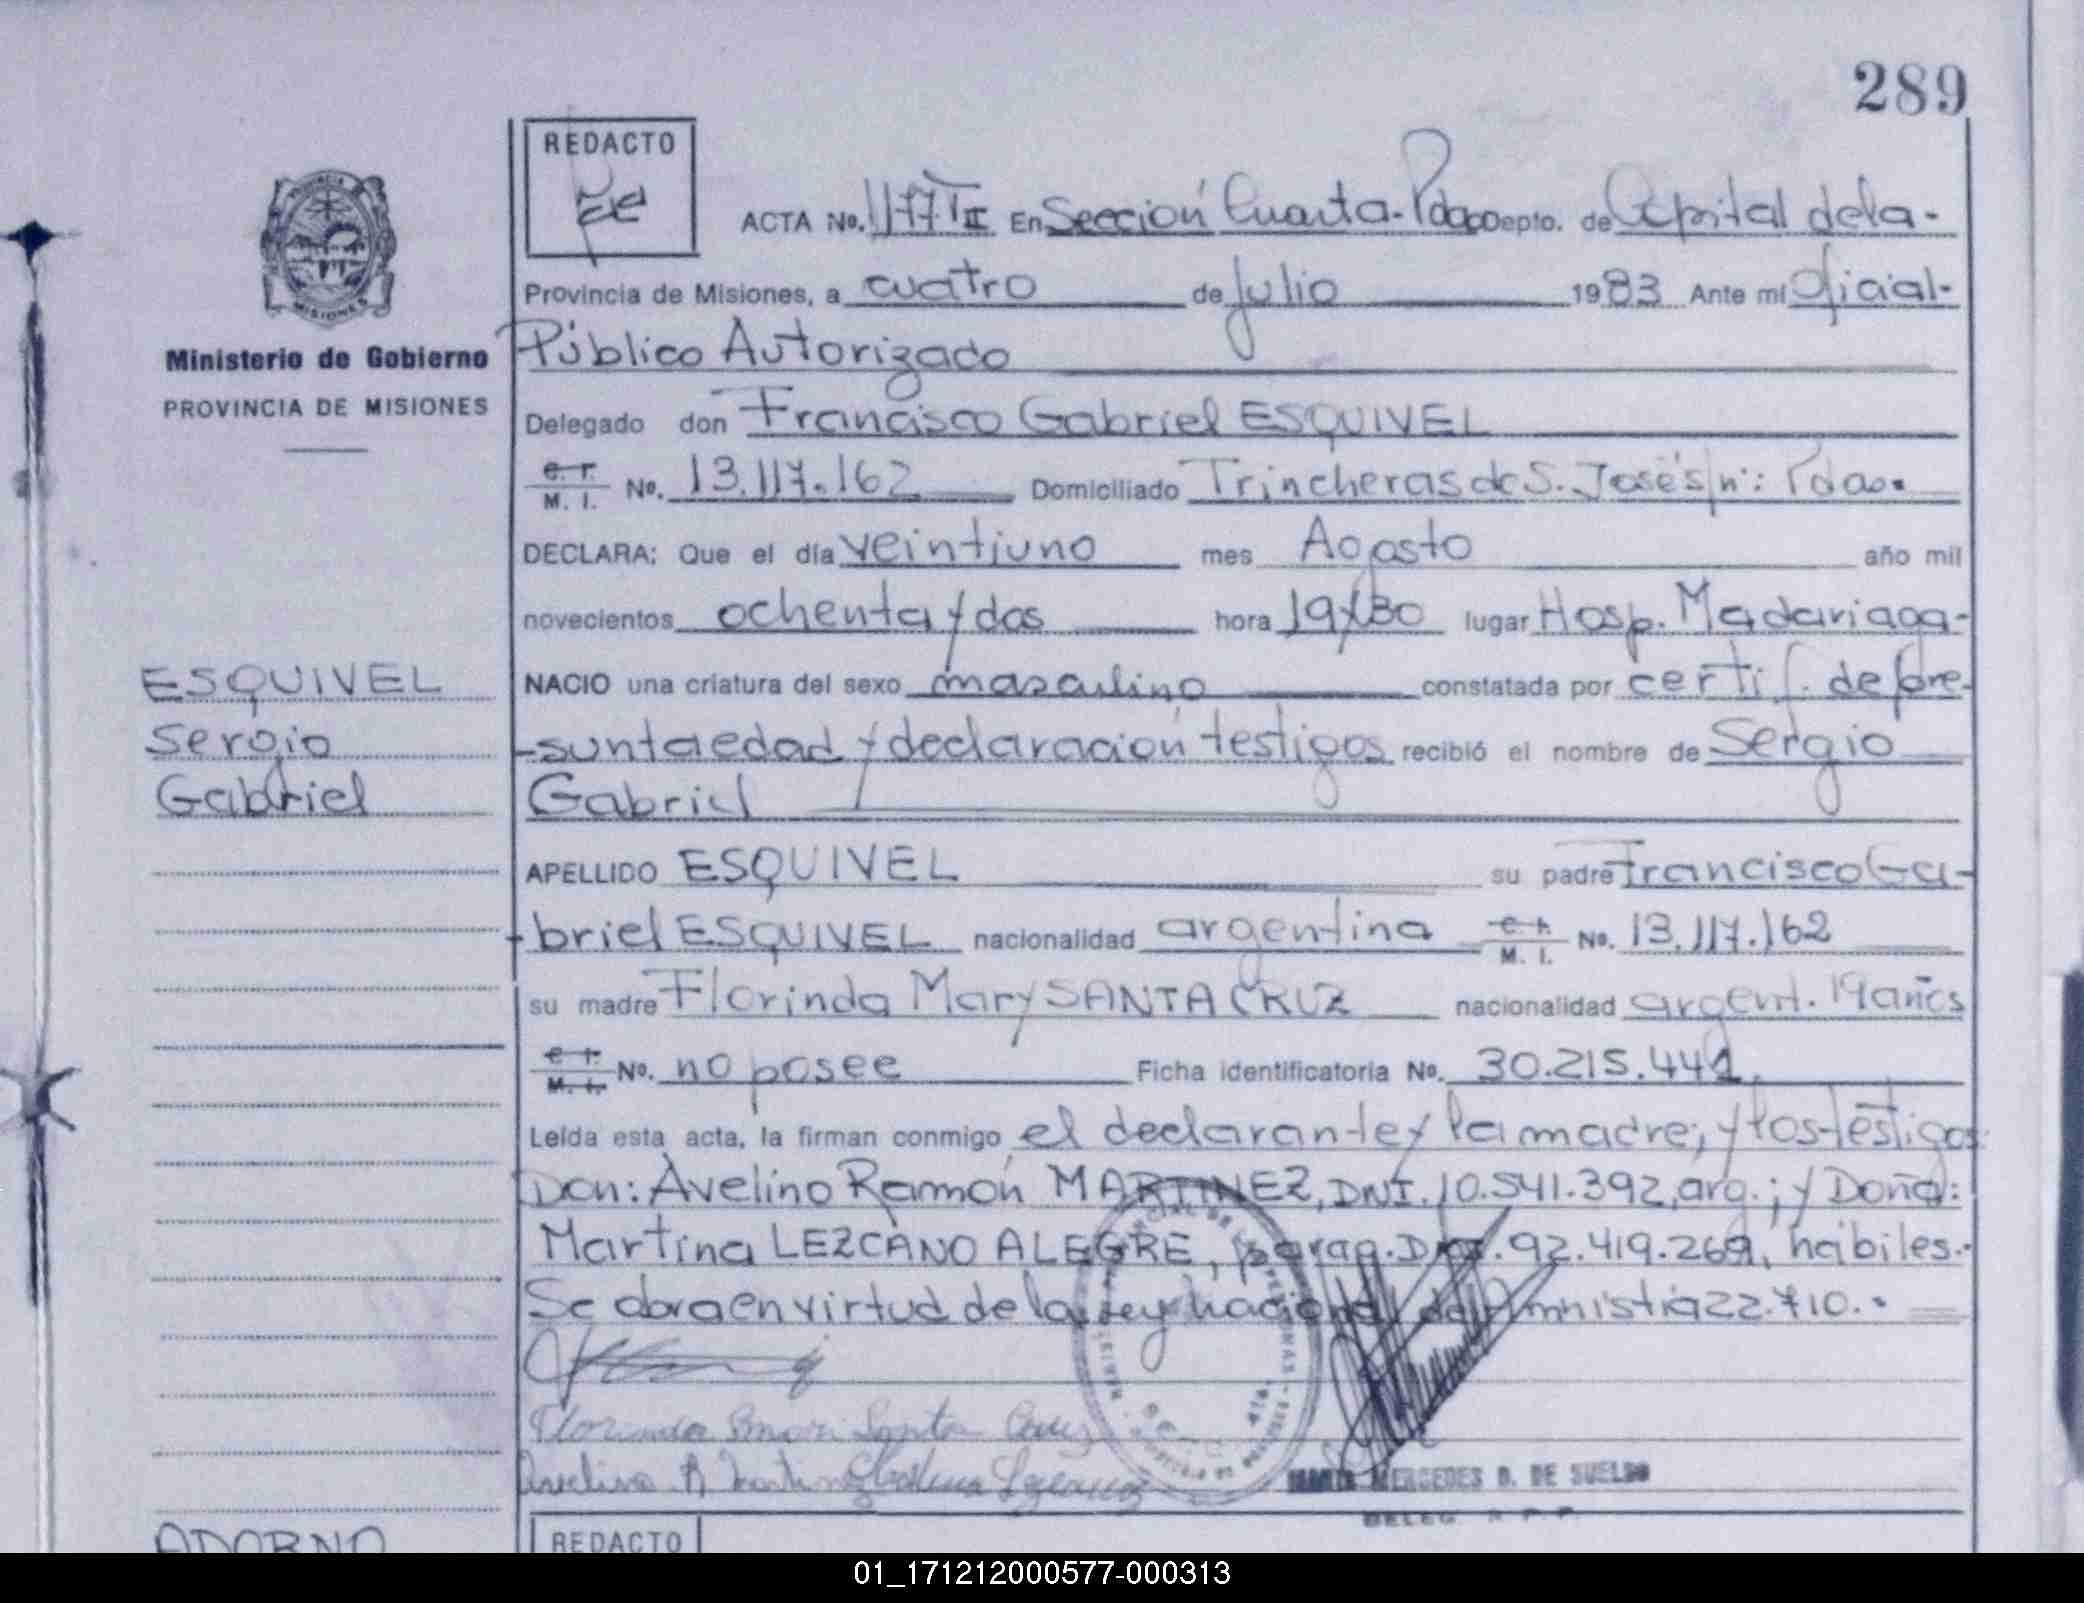 289
REDACTO
ACTA No. 1177 T II En Sección Cuarta - Pdas Depto. de Capital de la -
Provincia de Misiones, a cuatro de Julio 1983 Ante mí Oficial -
Ministerio de Gobierno
PROVINCIA DE MISIONES
MISIONES
Público Autorizado
Delegado don Francisco Gabriel ESQUIVEL
C. I. M. I. No. 13.117.162 Domiciliado Trincheras de S. José s/n: Pdas.
DECLARA: Que el día veintiuno mes Agosto año mil
novecientos ochenta y dos hora 19/30 lugar Hosp. Madariaga -
NACIO una criatura del sexo masculino constatada por certif. de pre-
-sunta edad y declaración testigos recibió el nombre de Sergio
Gabriel
ESQUIVEL
Sergio
Gabriel
APELLIDO ESQUIVEL su padre Francisco Ga-
-briel ESQUIVEL nacionalidad argentina C. I. M. I. No. 13.117.162
su madre Florinda Mary SANTA CRUZ nacionalidad argent. 19 años
C. I. M. I. No. no posee Ficha identificatoria No. 30.215.441.
Leída esta acta, la firman conmigo el declarante y la madre; y los testigos
Don: Avelino Ramón MARTINEZ, DNI. 10.541.392, arg.; y Doña:
Martina LEZCANO ALEGRE, parag. DNI. 92.419.269, hábiles.-
Se obra en virtud de la Ley Nacional de Amnistia 22.410.-
Florinda Mari Santa Cruz
Avelino R Martinez Lezcano
MERCEDES D. DE SUELDO
DELEG. R. P. P.
ADORNO
REDACTO
01_171212000577-000313